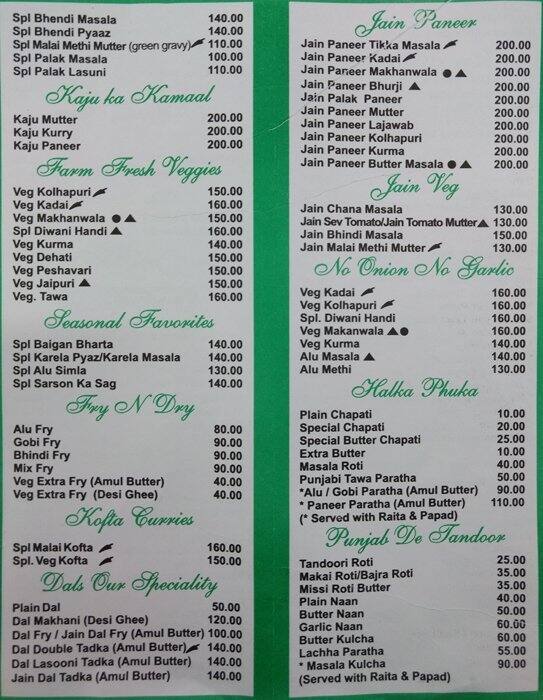 Spl Bhendi Masala 140.00
Spl Bhendi Pyaaz 140.00
Spl Malai Methi Mutter (green gravy) 110.00
Spl Palak Masala 100.00
Spl Palak Lasuni 110.00
Kaju ka Kamaal
Kaju Mutter 200.00
Kaju Kurry 200.00
Kaju Paneer 200.00
Farm Fresh Veggies
Veg Kolhapuri 150.00
Veg Kadai 160.00
Veg Makhanwala ●▲ 150.00
Spl Diwani Handi ▲ 160.00
Veg Kurma 140.00
Veg Dehati 150.00
Veg Peshavari 150.00
Veg Jaipuri ▲ 150.00
Veg. Tawa 160.00
Seasonal Favorites
Spl Baigan Bharta 140.00
Spl Karela Pyaz/Karela Masala 140.00
Spl Alu Simla 130.00
Spl Sarson Ka Sag 140.00
Fry N Dry
Alu Fry 80.00
Gobi Fry 90.00
Bhindi Fry 90.00
Mix Fry 90.00
Veg Extra Fry (Amul Butter) 40.00
Veg Extra Fry (Desi Ghee) 40.00
Kofta Curries
Spl Malai Kofta 160.00
Spl. Veg Kofta 150.00
Dals Our Speciality
Plain Dal 50.00
Dal Makhani (Desi Ghee) 120.00
Dal Fry / Jain Dal Fry (Amul Butter) 100.00
Dal Double Tadka (Amul Butter) 140.00
Dal Lasooni Tadka (Amul Butter) 140.00
Jain Dal Tadka (Amul Butter) 140.00
Jain Paneer
Jain Paneer Tikka Masala 200.00
Jain Paneer Kadai 200.00
Jain Paneer Makhanwala ●▲ 200.00
Jain Paneer Bhurji ▲ 200.00
Jain Palak Paneer 200.00
Jain Paneer Mutter 200.00
Jain Paneer Lajawab 200.00
Jain Paneer Kolhapuri 200.00
Jain Paneer Kurma 200.00
Jain Paneer Butter Masala ●▲ 200.00
Jain Veg
Jain Chana Masala 130.00
Jain Sev Tomato/Jain Tomato Mutter▲ 130.00
Jain Bhindi Masala 150.00
Jain Malai Methi Mutter 130.00
No Onion No Garlic
Veg Kadai 160.00
Veg Kolhapuri 160.00
Spl. Diwani Handi 160.00
Veg Makanwala ▲● 160.00
Veg Kurma 140.00
Alu Masala ▲ 140.00
Alu Methi 130.00
Halka Phuka
Plain Chapati 10.00
Special Chapati 20.00
Special Butter Chapati 25.00
Extra Butter 10.00
Masala Roti 40.00
Punjabi Tawa Paratha 50.00
*Alu / Gobi Paratha (Amul Butter) 90.00
* Paneer Paratha (Amul Butter) 110.00
(* Served with Raita & Papad)
Punjab De Tandoor
Tandoori Roti 25.00
Makai Roti/Bajra Roti 35.00
Missi Roti Butter 35.00
Plain Naan 40.00
Butter Naan 50.00
Garlic Naan 60.00
Butter Kulcha 60.00
Lachha Paratha 55.00
* Masala Kulcha 90.00
(Served with Raita & Papad)